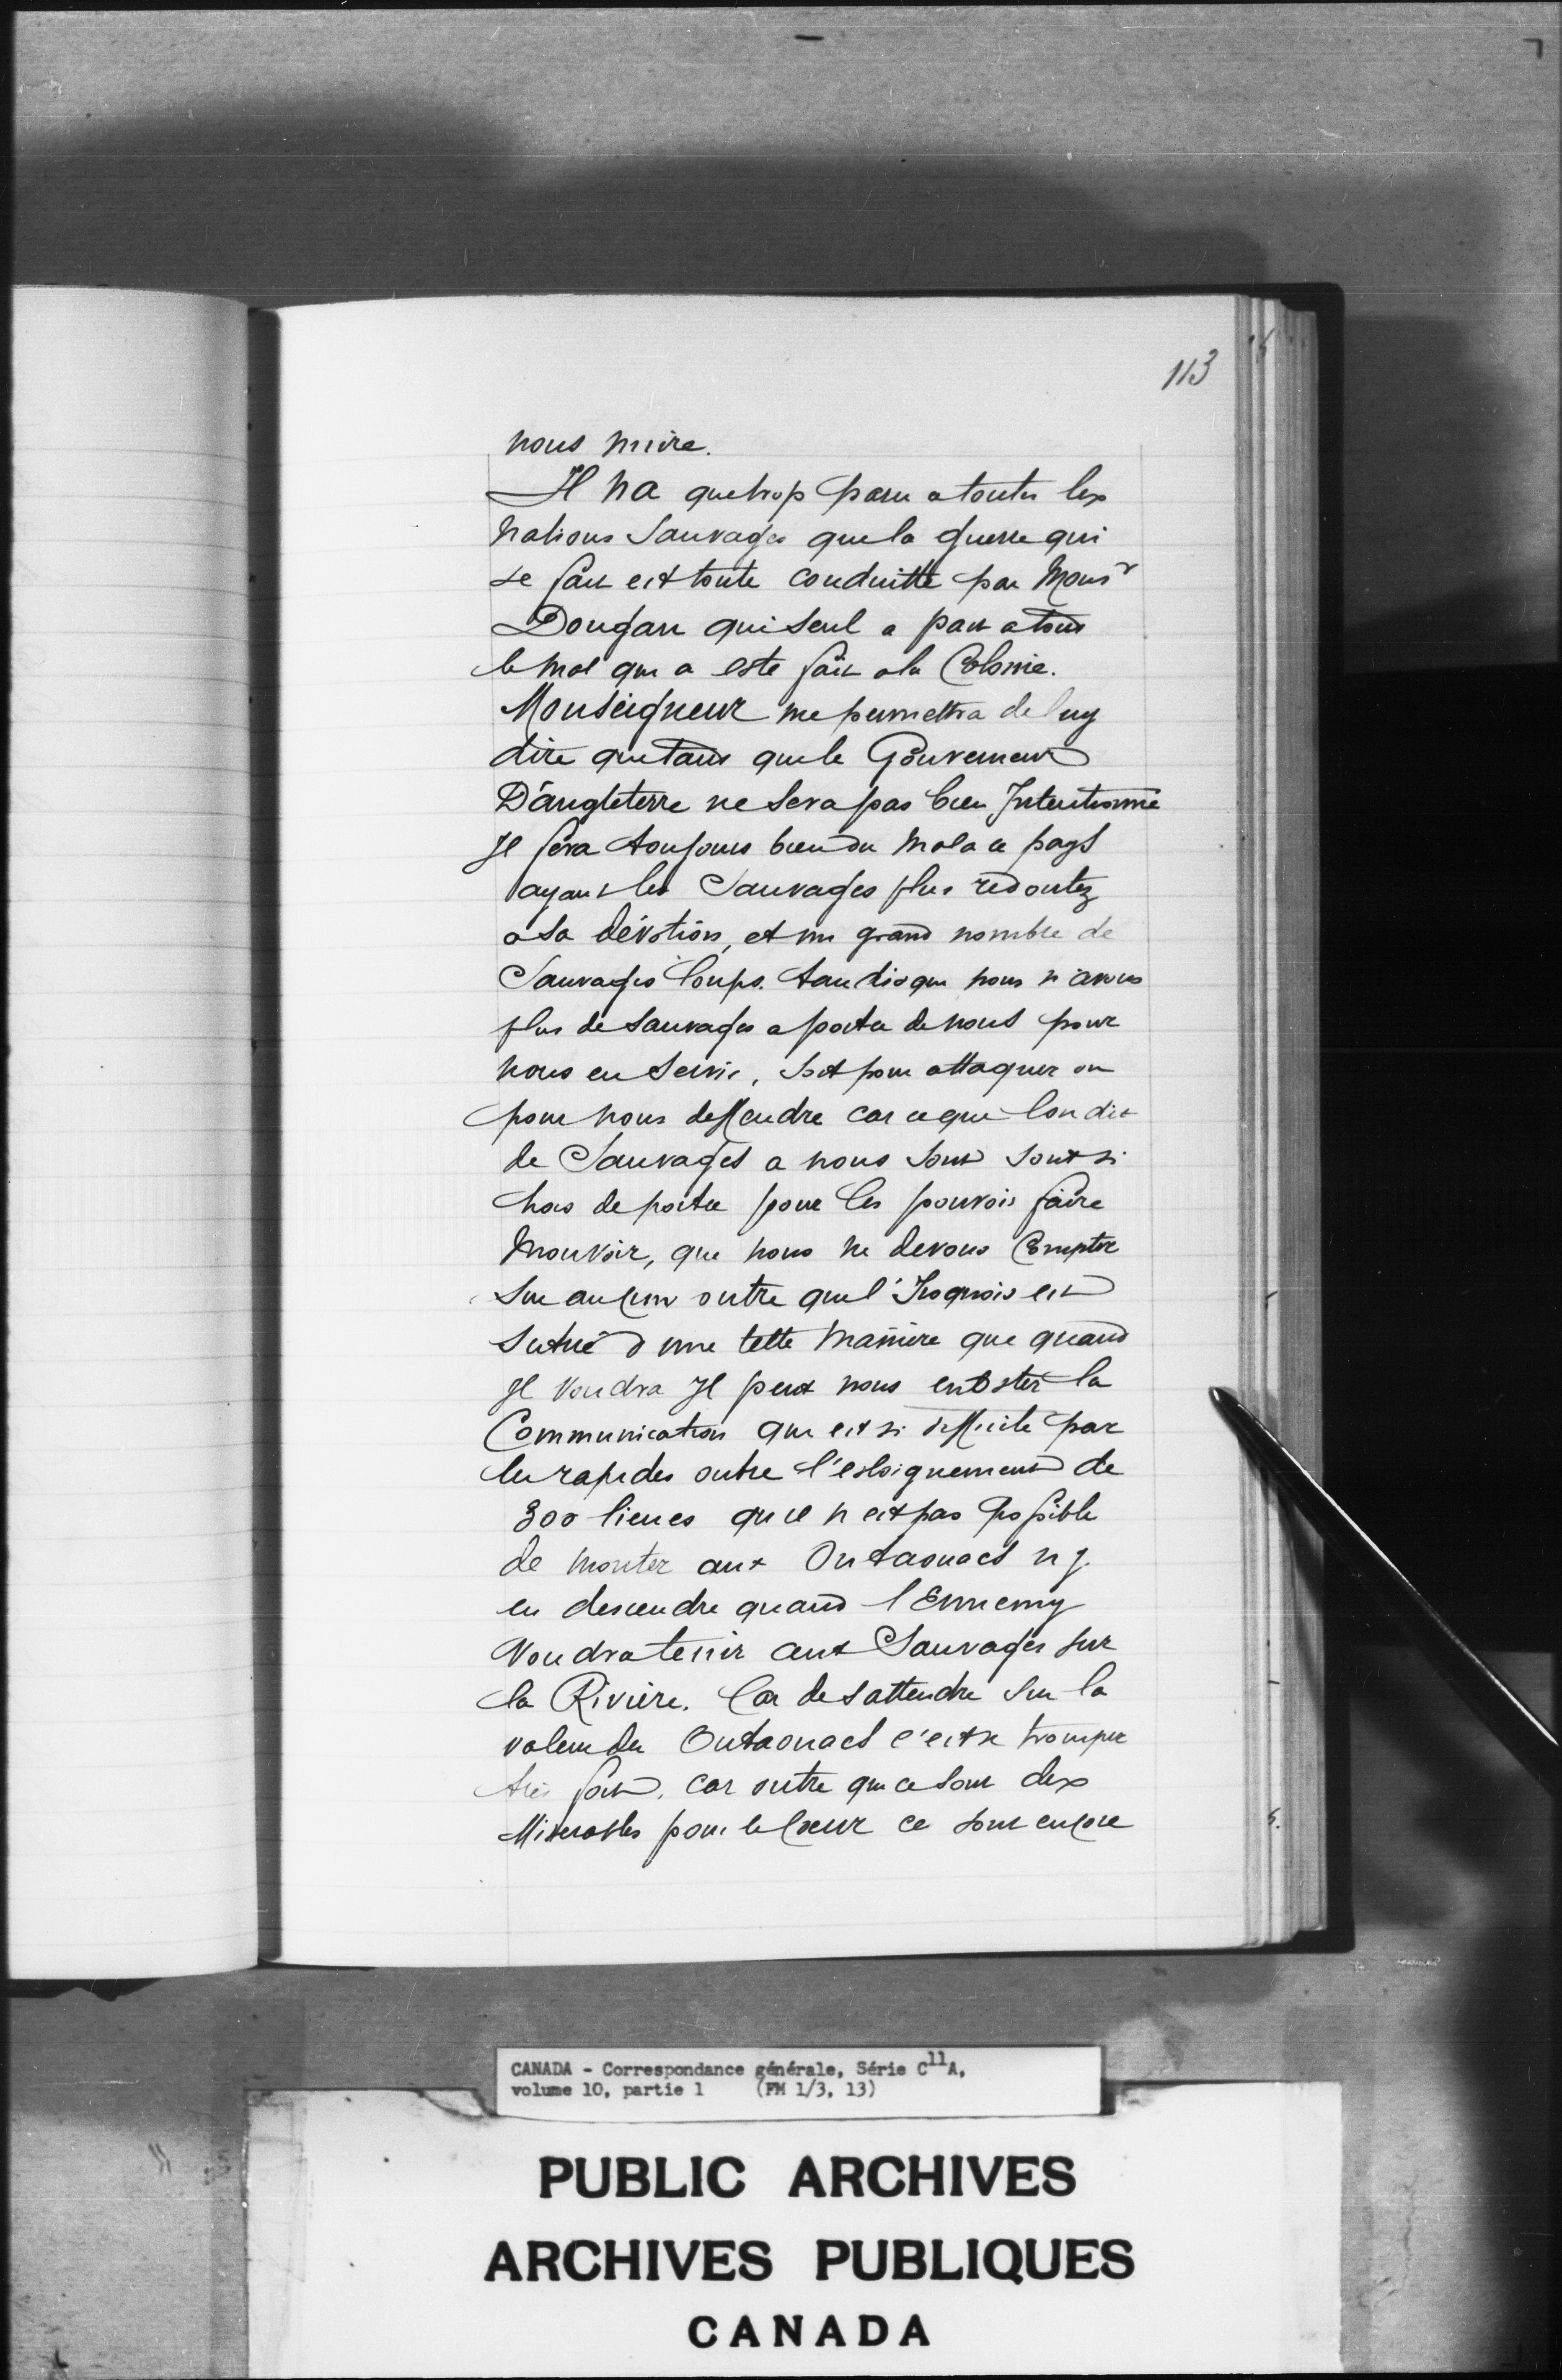 113
nous nuire.
Il na quetrop paru atoutes les
Nations Sauvages quela guerre qui
se fait est toute conduitte par Monsr
Dongan quiseul a part atout
le mal qui a este fait ala Colonie.
Monseigneur mepermettra deluy
dire quetant quele Gouverneur
D'angleterre ne sera pas bien Intentionné
Il fera toujours biendu mala ce pays
ayant les Sauvages plus redoutez
asa dévotion, et un grand nombre de
Sauvages Loups. tandisque nous n'avons
plus desauvages aportée denous pour
nous en servir, soit pour attaquer ou
pour nous deffendre car ceque lon dit
de Sauvages a nous sont sont si
hors deportée pour les pouvoir faire
mouvoir, que nous ne devons Compter
sur aucun outre quel'Iroquois est
situé d'une telle manière que quand
Il voudra Il peut nous enoster la
Communication qui est si difficile par
les rapides outre l'esloignement de
300 lieues qu'il n'est pas possible
de monter aux Outaouacs ny
en descendre quand l'Ennemy
voudratenir aux Sauvages sur
la Rivière. Car desattendre sur la
valeurdes Outaouacs c'est se tromper
très fort, car outre que cesont des
Miserables pour le Coeur ce sont encore
CANADA - Correspondance générale, Série C11A,
volume 10, partie 1 (FM 1/3, 13)
PUBLIC ARCHIVES
ARCHIVES PUBLIQUES
CANADA